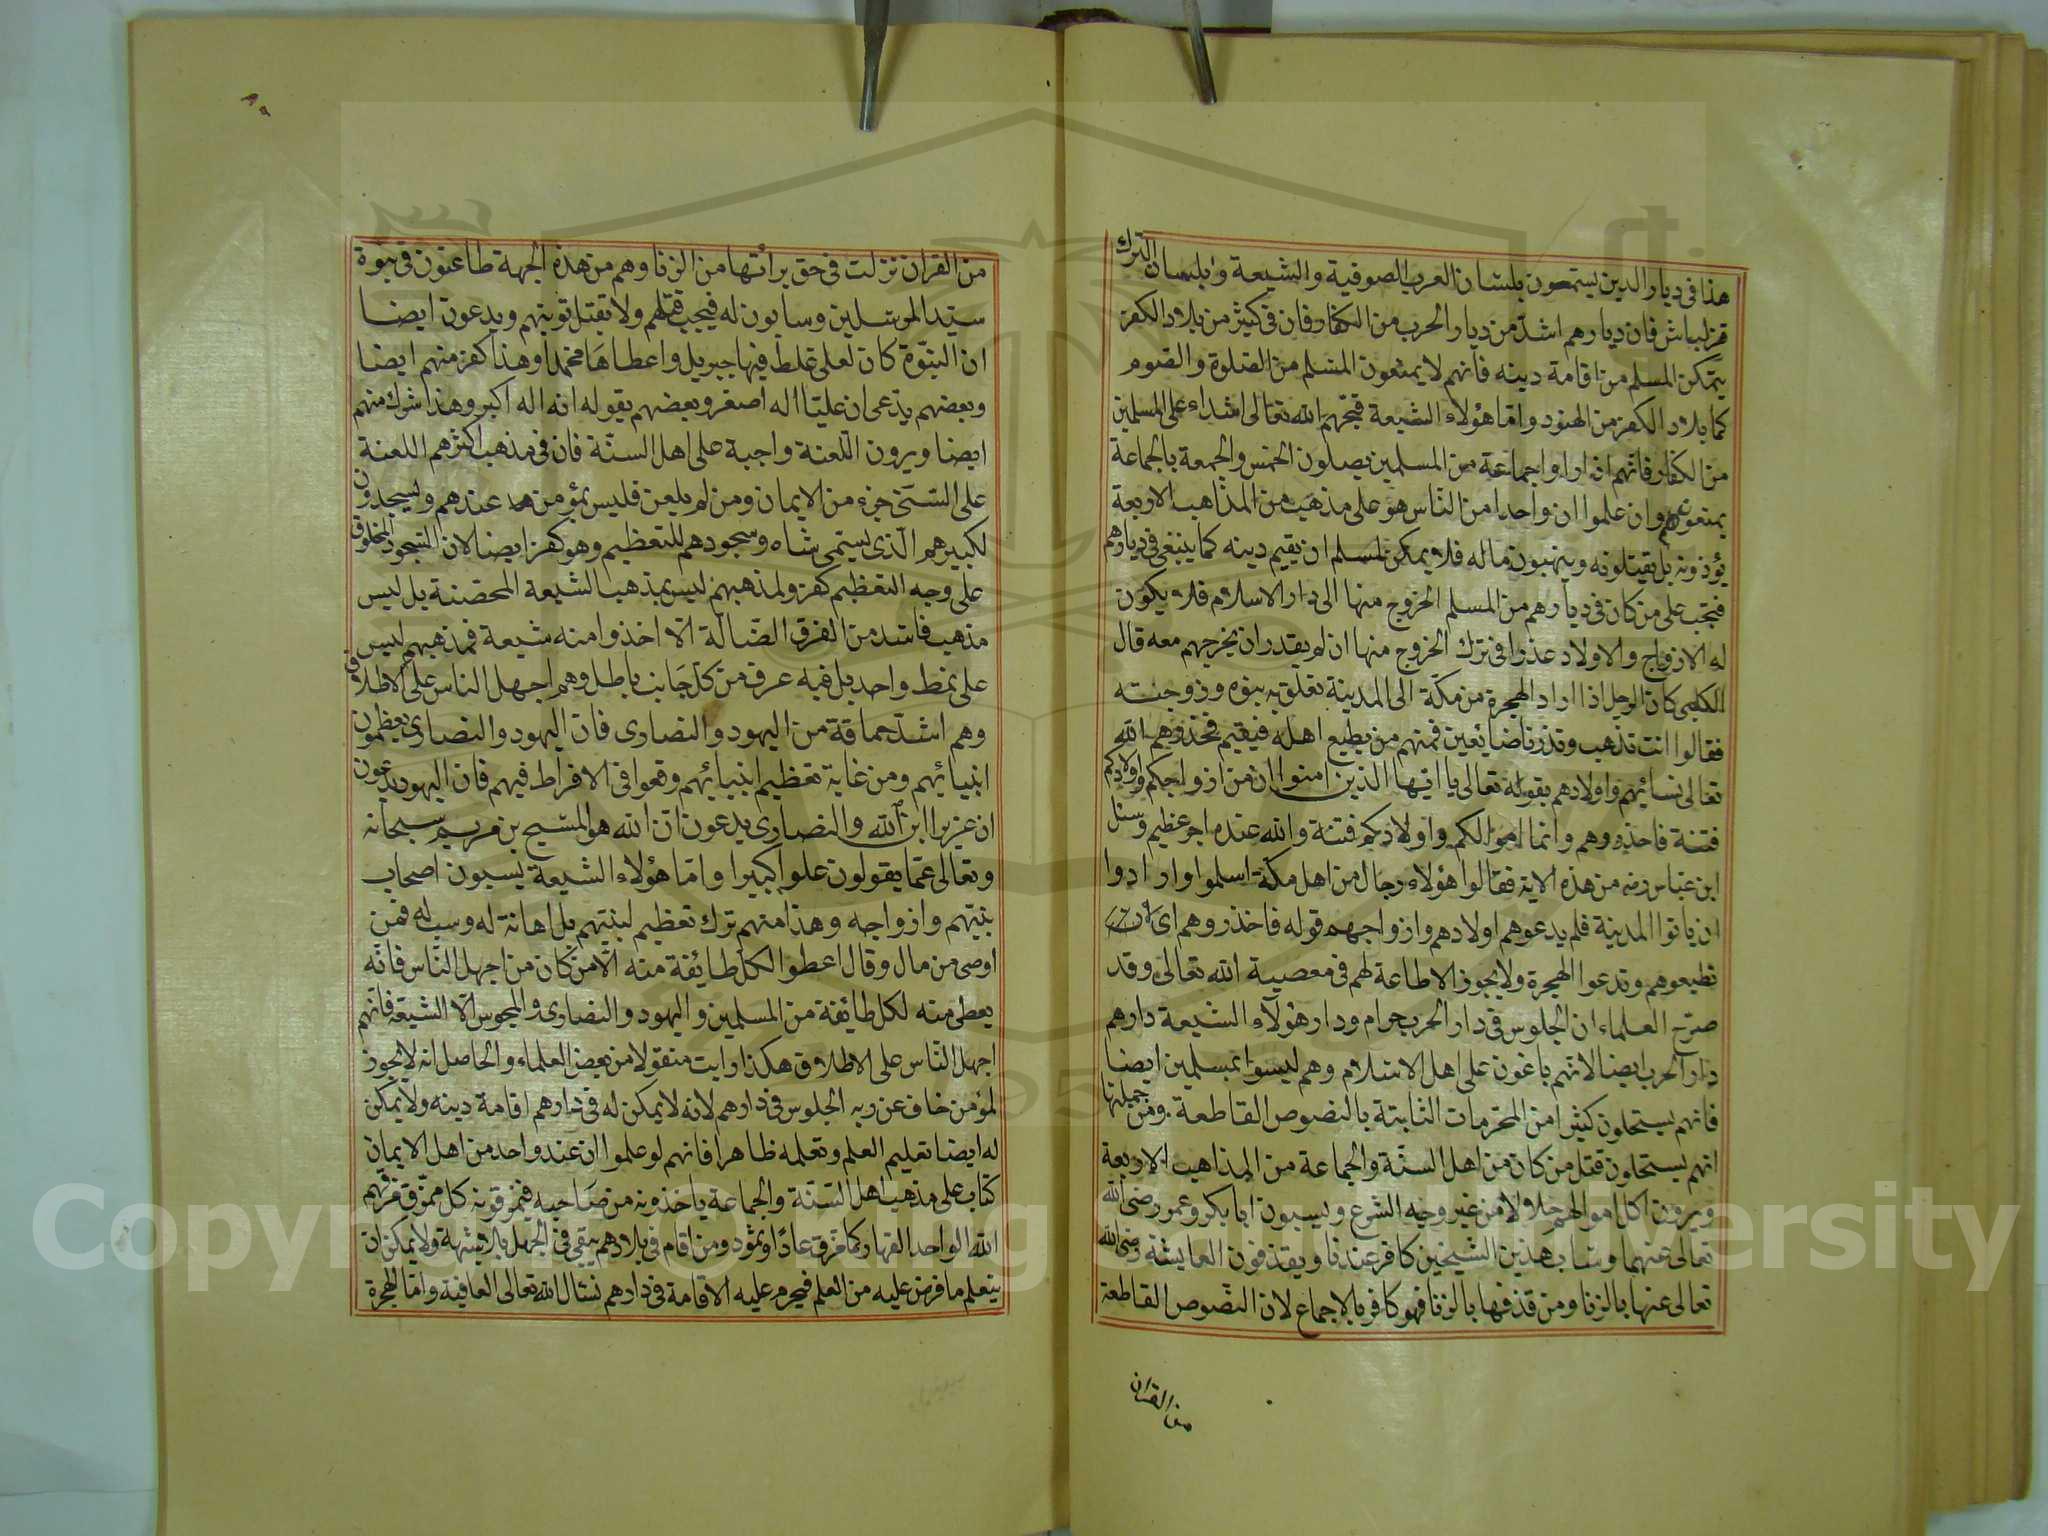 هذا فى ديار الذين يستمعون بلسان العرب الصوفية والشيعة وبلسان الترك
قزلباش فان ديارهم اشدّ من ديار الحرب من الكفار فان فى كثير من بلاد الكفر
يتمكن المسلم من اقامة دينه فانهم لا يمنعون المسلم من الصلوة والصوم
كما بلاد الكفر من الهنود واما هؤلاء الشيعة قبحّهم الله تعالى اشداء على المسلمين
من الكفار فانهم اذا راوا جماعة من المسلمين يصلون الخمس والجمعة بالجماعة
يمنعونهم وان علموا ان واحدا من الناس هو على مذهب من المذاهب الاربعة
يؤذونه بل يقتلونه وينهبون ماله فلا يمكن لمسلم ان يقيم دينه كما ينبغى فى ديارهم
فيجب على من كان فى ديارهم من المسلم الخروج منها الى دار الاسلام فلا يكون
له الازواج والاولاد عذرا فى ترك الخروج منها ان لم يقدر ان يخرجهم معه قال
الكلبى كان الرجل اذا اراد الهجرة من مكّة الى المدينة تعلق به بنوه وزوجته
فقالوا انت تذهب وتذرنا ضائعين فمنهم من يطيع اهله فيقيم فحذرهم الله
تعالى نسائهم واولادهم بقوله تعالى يا ايها الذين امنوا ان من ازواجكم واولادكم
فتنة فاحذروهم وانما اموالكم واولادكم فتنة والله عنده اجر عظيم وسئل
ابن عباس رضه من هذه الاية فقالوا هؤلاء رجال من اهل مكة اسلموا وارادوا
ان ياتوا المدينة فلم يدعوهم اولادهم وازواجهم قوله فاحذروهم اى لا ان
تطيعوهم وتدعوا الهجرة ولا يجوز الاطاعة لهم فى معصية الله تعالى وقد
صرّح العلماء ان الجلوس فى دار الحرب حرام ودار هؤلآء الشيعة دارهم
دار الحرب ايضا لانهم باغون على اهل الاسلام وهم ليسوا بمسلمين ايضا
فانهم يستحلون كثيرا من المحرمات الثابتة بالنصوص القاطعة . ومن جملتها
انهم يستحلون قتل من كان من اهل السنّة والجماعة من المذاهب الاربعة
ويرون اكل اموالهم حلالا من غير وجه الشرع ويسبون ابا بكر وعمر رضى الله
تعالى عنهما وسابّ هذين الشيخين كافر عندنا ويقذفون العايشة رضى الله
تعالى عنها بالزنا ومن قذفها بالزنا فهو كافر بالاجماع لان النصوص القاطعة
من القران
٨٩
من القران نزلت فى حق برأتها من الزنا وهم من هذه الجهة طاعنون فى نبوّة
سيد المرسلين وسابون له فيجب قتلهم ولا يقتل توبتهم ويدعون ايضا
ان النبوّة كان لعلى غلط فيها جبريل واعطاها محمدا وهذا كفر منهم ايضا
وبعضهم يدّعى ان عليّا اله اصغر وبعضهم يقوله انه اله اكبر وهذا شرك منهم
ايضا ويرون اللّعنة واجبة على اهل السنّة فان فى مذهب اكثرهم اللعنة
على السّنى جزء من الايمان ومن لم يلعن فليس بمؤمن عندهم ويسجدون
لكبيرهم الّذى يستمى شاه وسجودهم للتعظيم وهو كفر ايضا لان السّجود المخلوق
على وجه التعظيم كفر ولمذهبهم ليس بمذهب الشيعة المحضنة بل ليس
مذهب فاسد من الفرق الضّالّة الّا اخذوا منه شيعة فمذهبهم ليس
على نمط واحد بل فيه عرق من كلّ جانب باطل وهم اجهل الناس على الاطلاق
وهم اشدّ حماقة من اليهود والنصارى فان اليهود والنصارى يعظمون
انبيائهم ومن غاية تعظيم انبيائهم وقعوا فى الافراط فيهم فان اليهود يدعون
ان عزيرا ابن الله والنصارى يدعون انّ الله هو المسيح بن مريم سبحانه
وتعالى عمّا يقولون علوا كبيرا واما هؤلاء الشيعة يسبون اصحاب
نبيّهم وازواجه وهذا منهم ترك تعظيم لنبيّهم بل اهانة له وسب له فمن
اوصى من مال وقال اعطوا لكل طايفة منه الّا من كان من اجهل النّاس فانّه
يعطى منه لكل طايفة من المسلمين واليهود والنصارى والمجوس الّا الشيعة فانّهم
اجهل النّاس على الاطلاق هكذا رايت منقولا من بعض العلماء والحاصل انه لا يجوز
لمؤمن خاف عن ربه الجلوس فى دارهم لانه لا يمكن له فى دارهم اقامة دينه ولا يمكن
له ايضا تعليم العلم وتعلمه ظاهرا فانهم لو علموا ان عند واحد من اهل الايمان
كتاب على مذهب اهل السّنّة والجماعة ياخذونه من صاحبه فيمزقونه كل ممزّق فرّقهم
الله الواحد القهار كما فرق عادا وثمود ومن اقام فى بلادهم يبقى فى الجهل بلا شبهة ولا يمكن ان
يتعلم ما فرض عليه من العلم فيحرم عليه الاقامة فى دارهم نسئال الله تعالى العافية واما الهجرة
Copyright © King Saud University